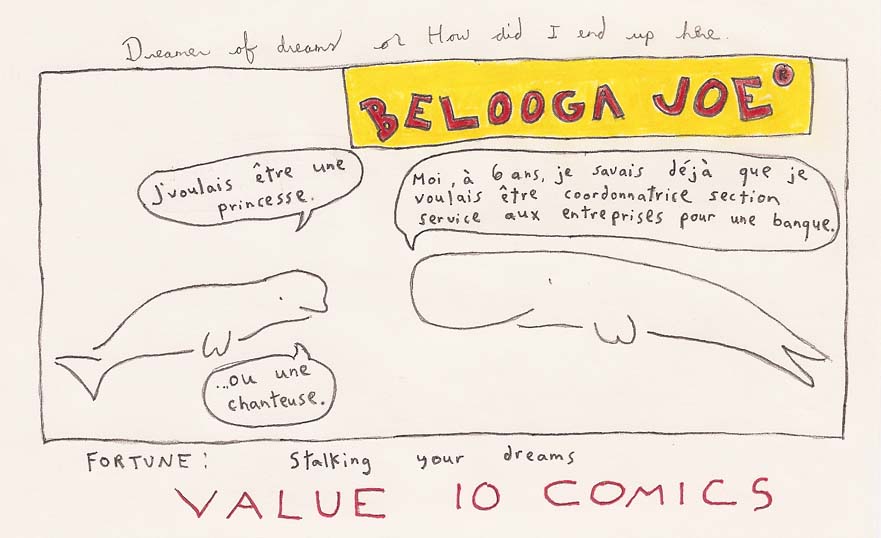 Dreamer of dreams or How did I end up here.
BELOOGA JOE ®
J'voulais être une
princesse.
Moi, à 6 ans, je savais déjà que je
voulais être coordonnatrice section
service aux entreprises pour une banque.
...ou une
chanteuse.
FORTUNE: Stalking your dreams
VALUE 10 COMICS